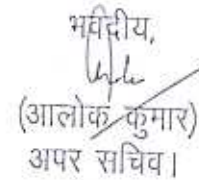 भवदीय,
(आलोक कुमार)
अपर सचिव।